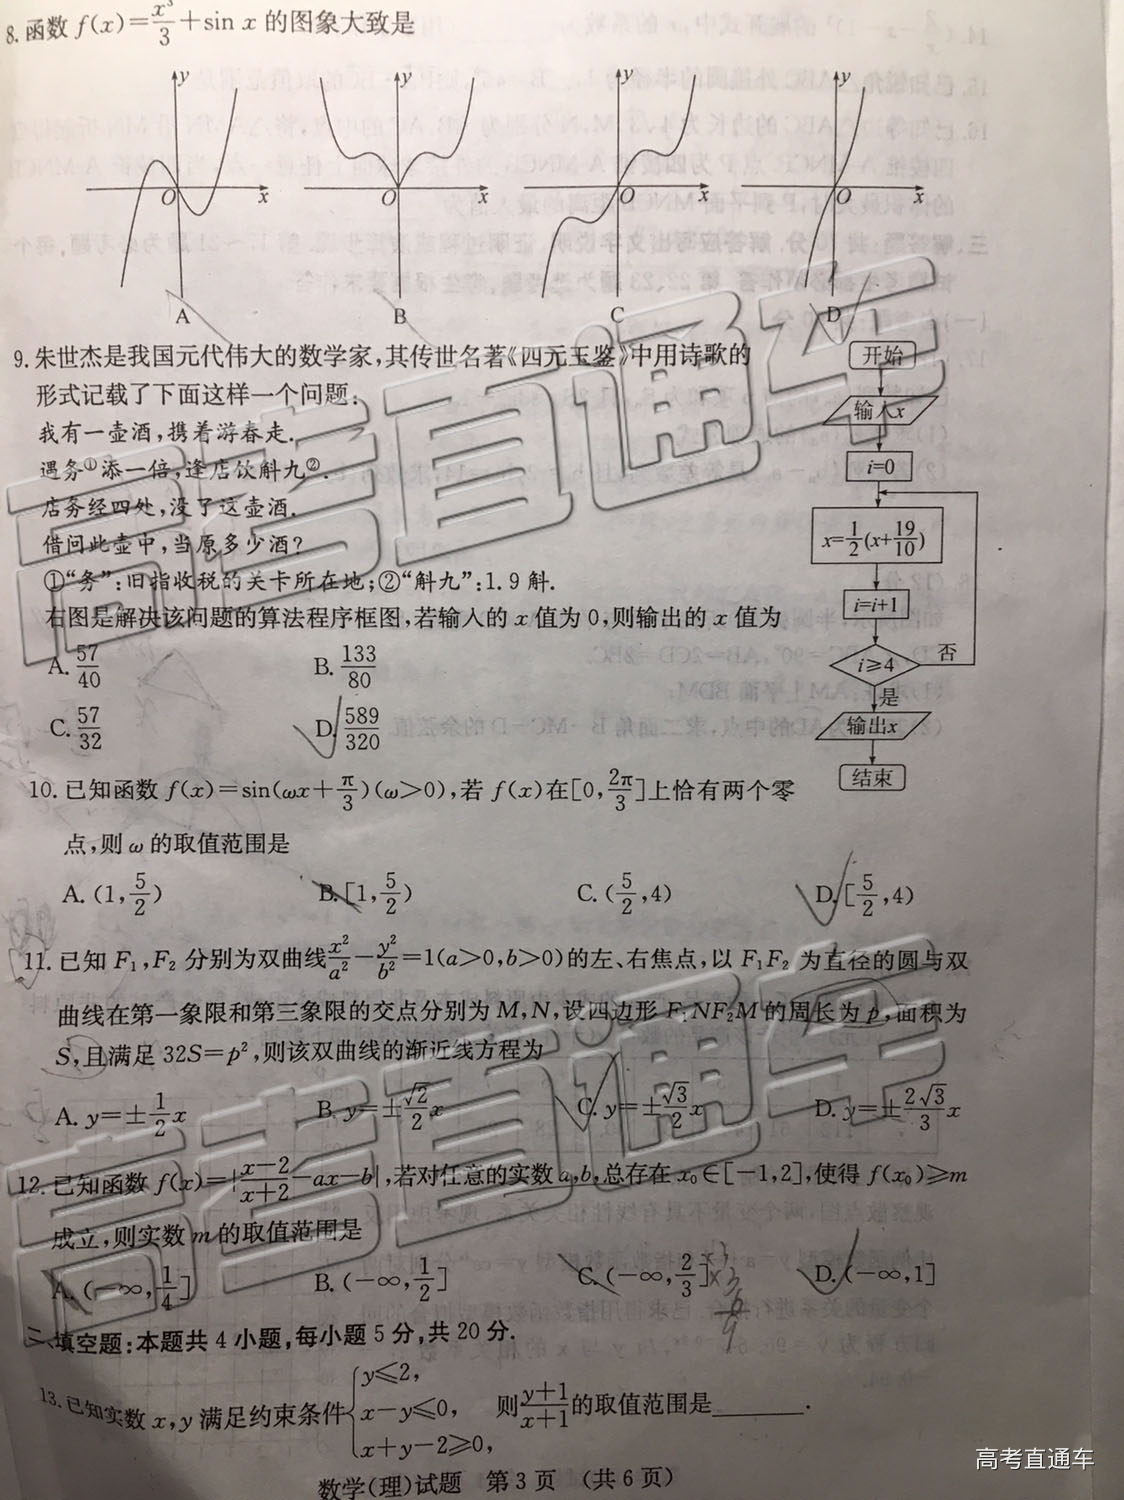 8. 函数 f(x)=x³/3+sin x 的图象大致是
y
y
y
y
O x
O x
O x
O x
A
B
C
D
9. 朱世杰是我国元代伟大的数学家,其传世名著《四元玉鉴》中用诗歌的
形式记载了下面这样一个问题:
我有一壶酒,携着游春走.
遇务①添一倍,逢店饮斛九②.
店务经四处,没了这壶酒.
借问此壶中,当原多少酒?
①“务”:旧指收税的关卡所在地;②“斛九”:1.9斛.
右图是解决该问题的算法程序框图,若输入的 x 值为 0,则输出的 x 值为
A. 57/40
B. 133/80
C. 57/32
D. 589/320
开始
输入x
i=0
x=1/2(x+19/10)
i=i+1
i≥4
否
是
输出x
结束
10. 已知函数 f(x)=sin(ωx+π/3)(ω>0),若 f(x)在[0,2π/3]上恰有两个零
点,则 ω 的取值范围是
A. (1,5/2)
B. [1,5/2)
C. (5/2,4)
D. [5/2,4)
11. 已知 F₁,F₂ 分别为双曲线x²/a²−y²/b²=1(a>0,b>0)的左、右焦点,以 F₁F₂ 为直径的圆与双
曲线在第一象限和第三象限的交点分别为 M,N,设四边形 F₁NF₂M 的周长为 p,面积为
S,且满足 32S=p²,则该双曲线的渐近线方程为
A. y=±1/2x
B. y=±√2/2x
C. y=±√3/2x
D. y=±2√3/3x
12. 已知函数 f(x)=|x−2/x+2−ax−b|,若对任意的实数 a,b,总存在 x₀∈[−1,2],使得 f(x₀)≥m
成立,则实数 m 的取值范围是
A. (−∞,1/4]
B. (−∞,1/2]
C. (−∞,2/3]
D. (−∞,1]
二、填空题:本题共 4 小题,每小题 5 分,共 20 分.
13. 已知实数 x,y 满足约束条件{y≤2, x−y≤0, x+y−2≥0, 则y+1/x+1的取值范围是______.
数学(理)试题 第 3 页 (共 6 页)
高考直通车
高考直通车
高考直通车